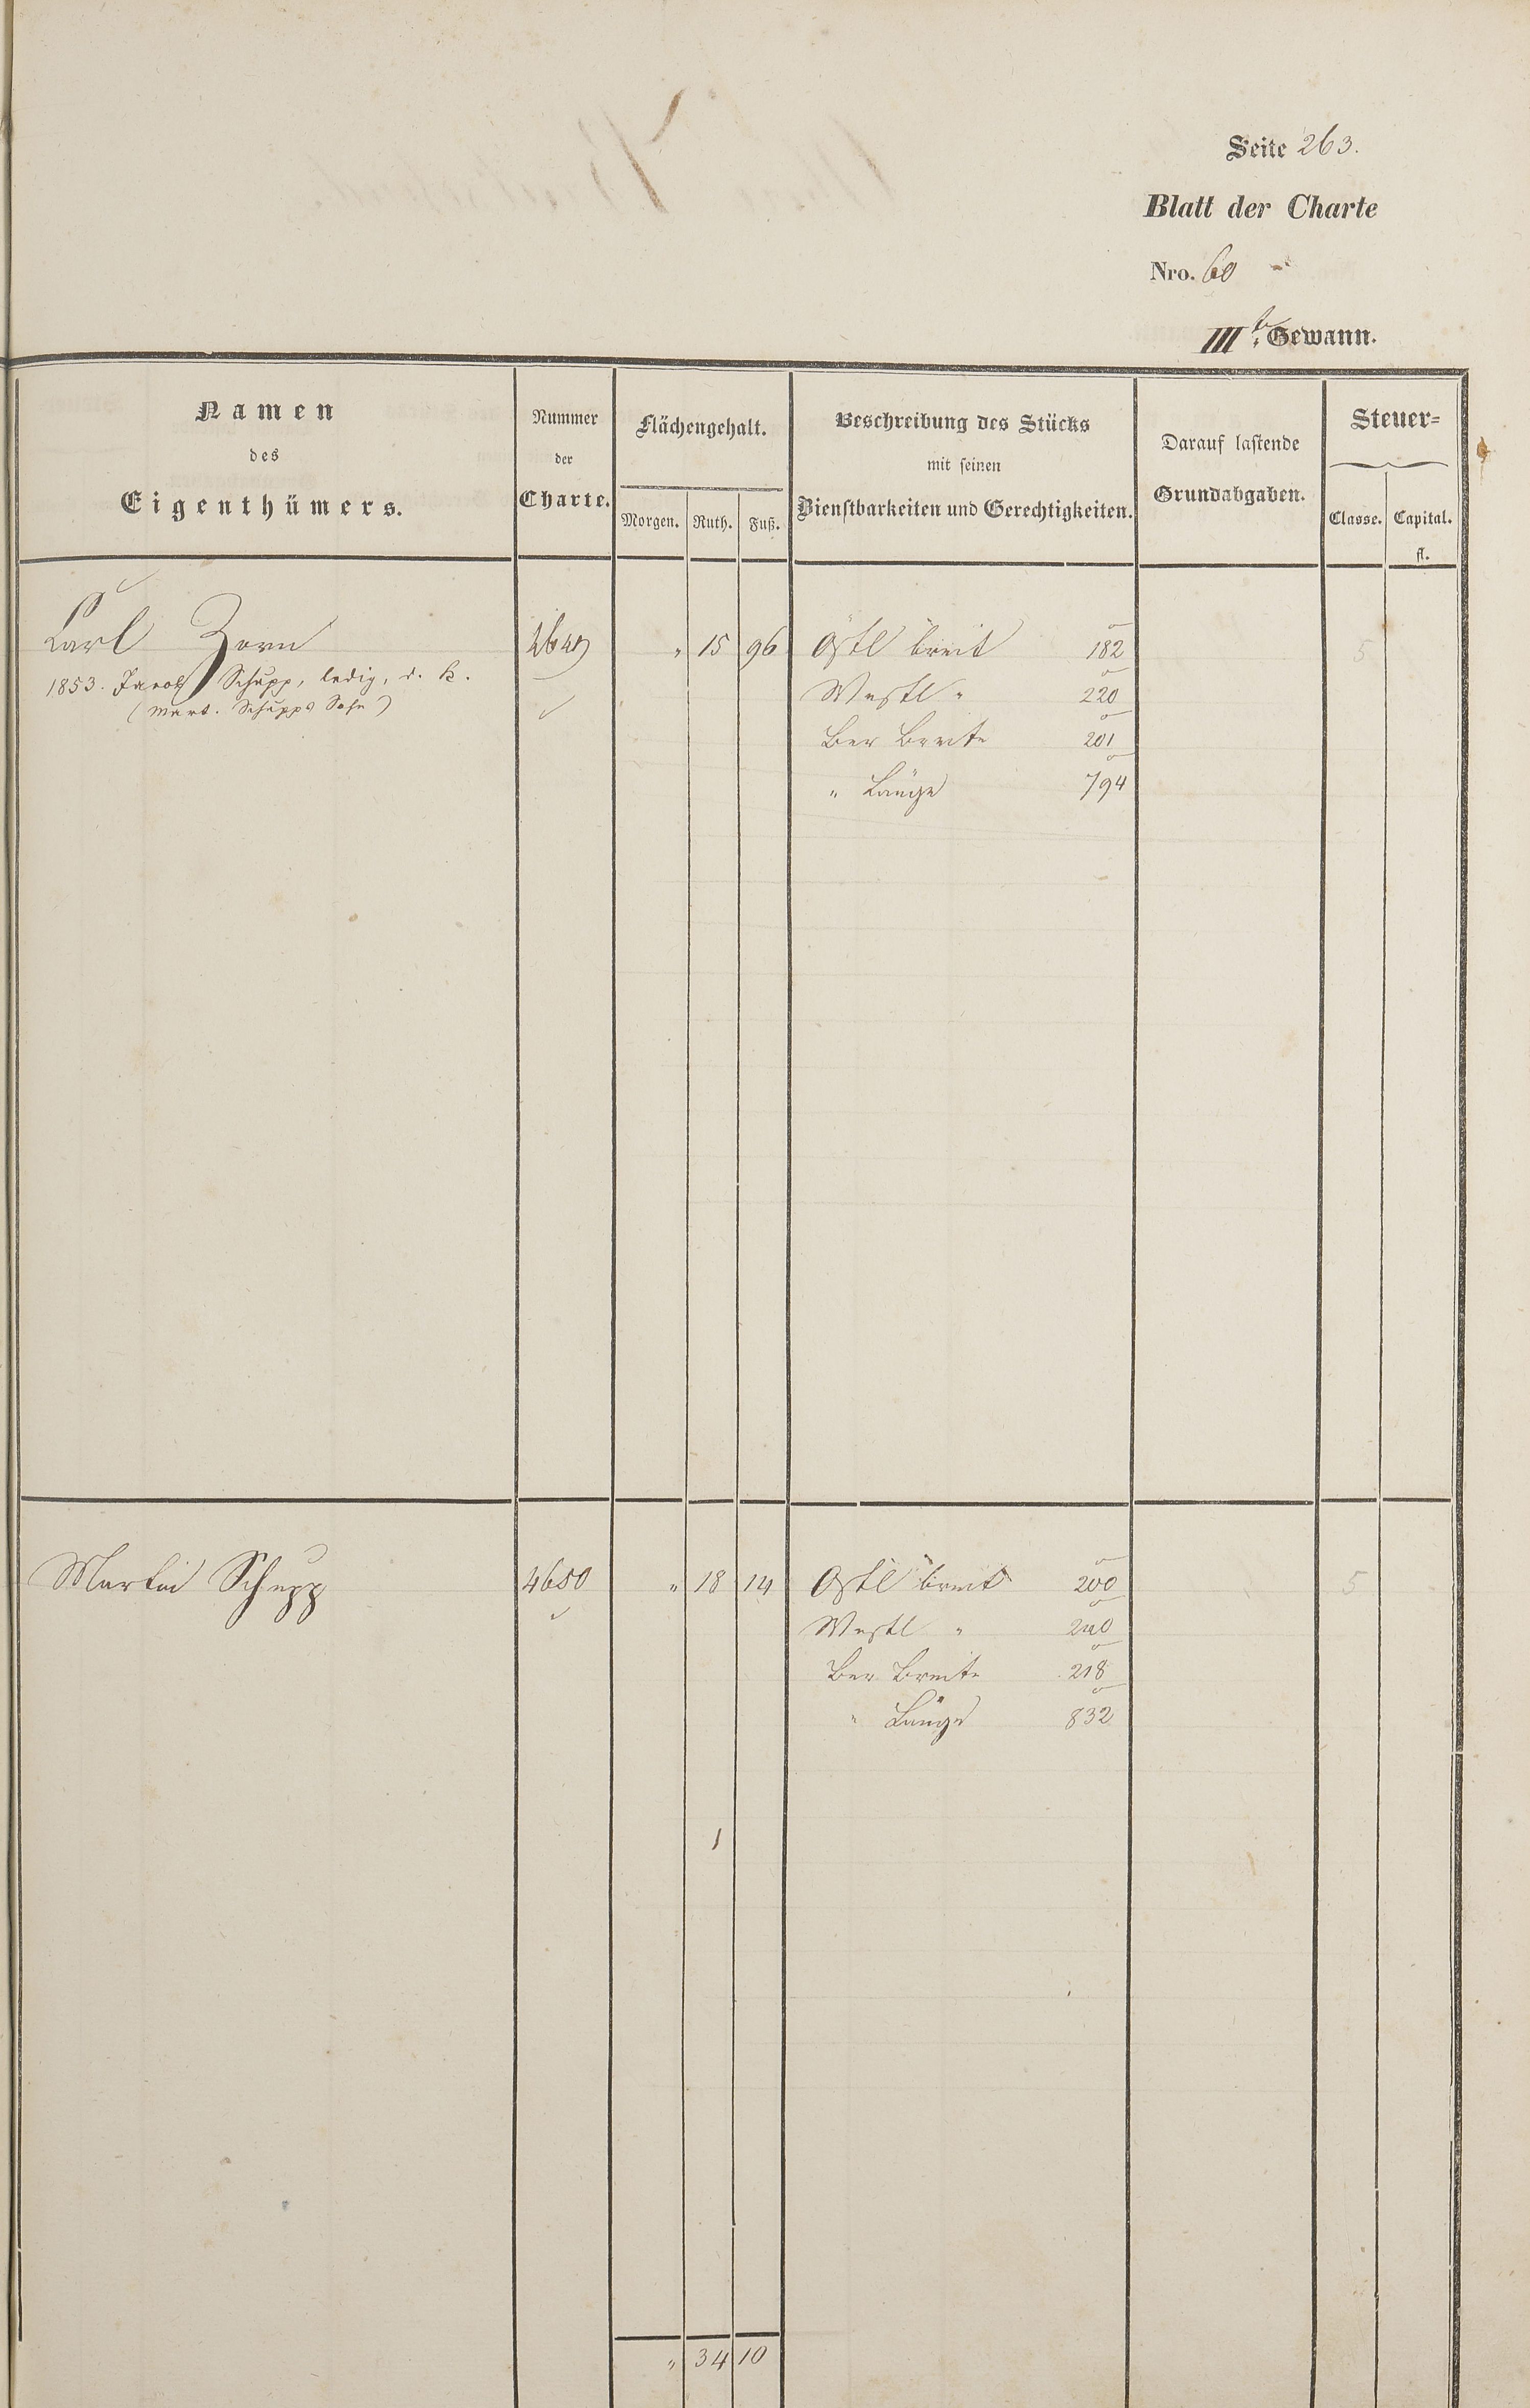 Seite 263.
Blatt der Charte
Nro. 60
III te Gewann.
Namen
des
Eigenthümers.
Nummer
der
Charte.
Flächengehalt.
Morgen. Ruth. Fuß.
Beschreibung des Stücks
mit seinen
Dienstbarkeiten und Gerechtigkeiten.
Darauf lastende
Grundabgaben.
Steuer-
Classe. Capital.
fl.
Carl Zorn 4649 " 15 96 Östl breit 182 5
1853. Jacob Schupp, ledig, d. h. Westl " 220
(Mart. Schupps Sohn)
Ber Breite 201
" Länge 794
Martin Schupp 4650 " 18 14 Östl breit 200 5
Westl " 240
Ber Breite 218
" Länge 832
1
" 34 10